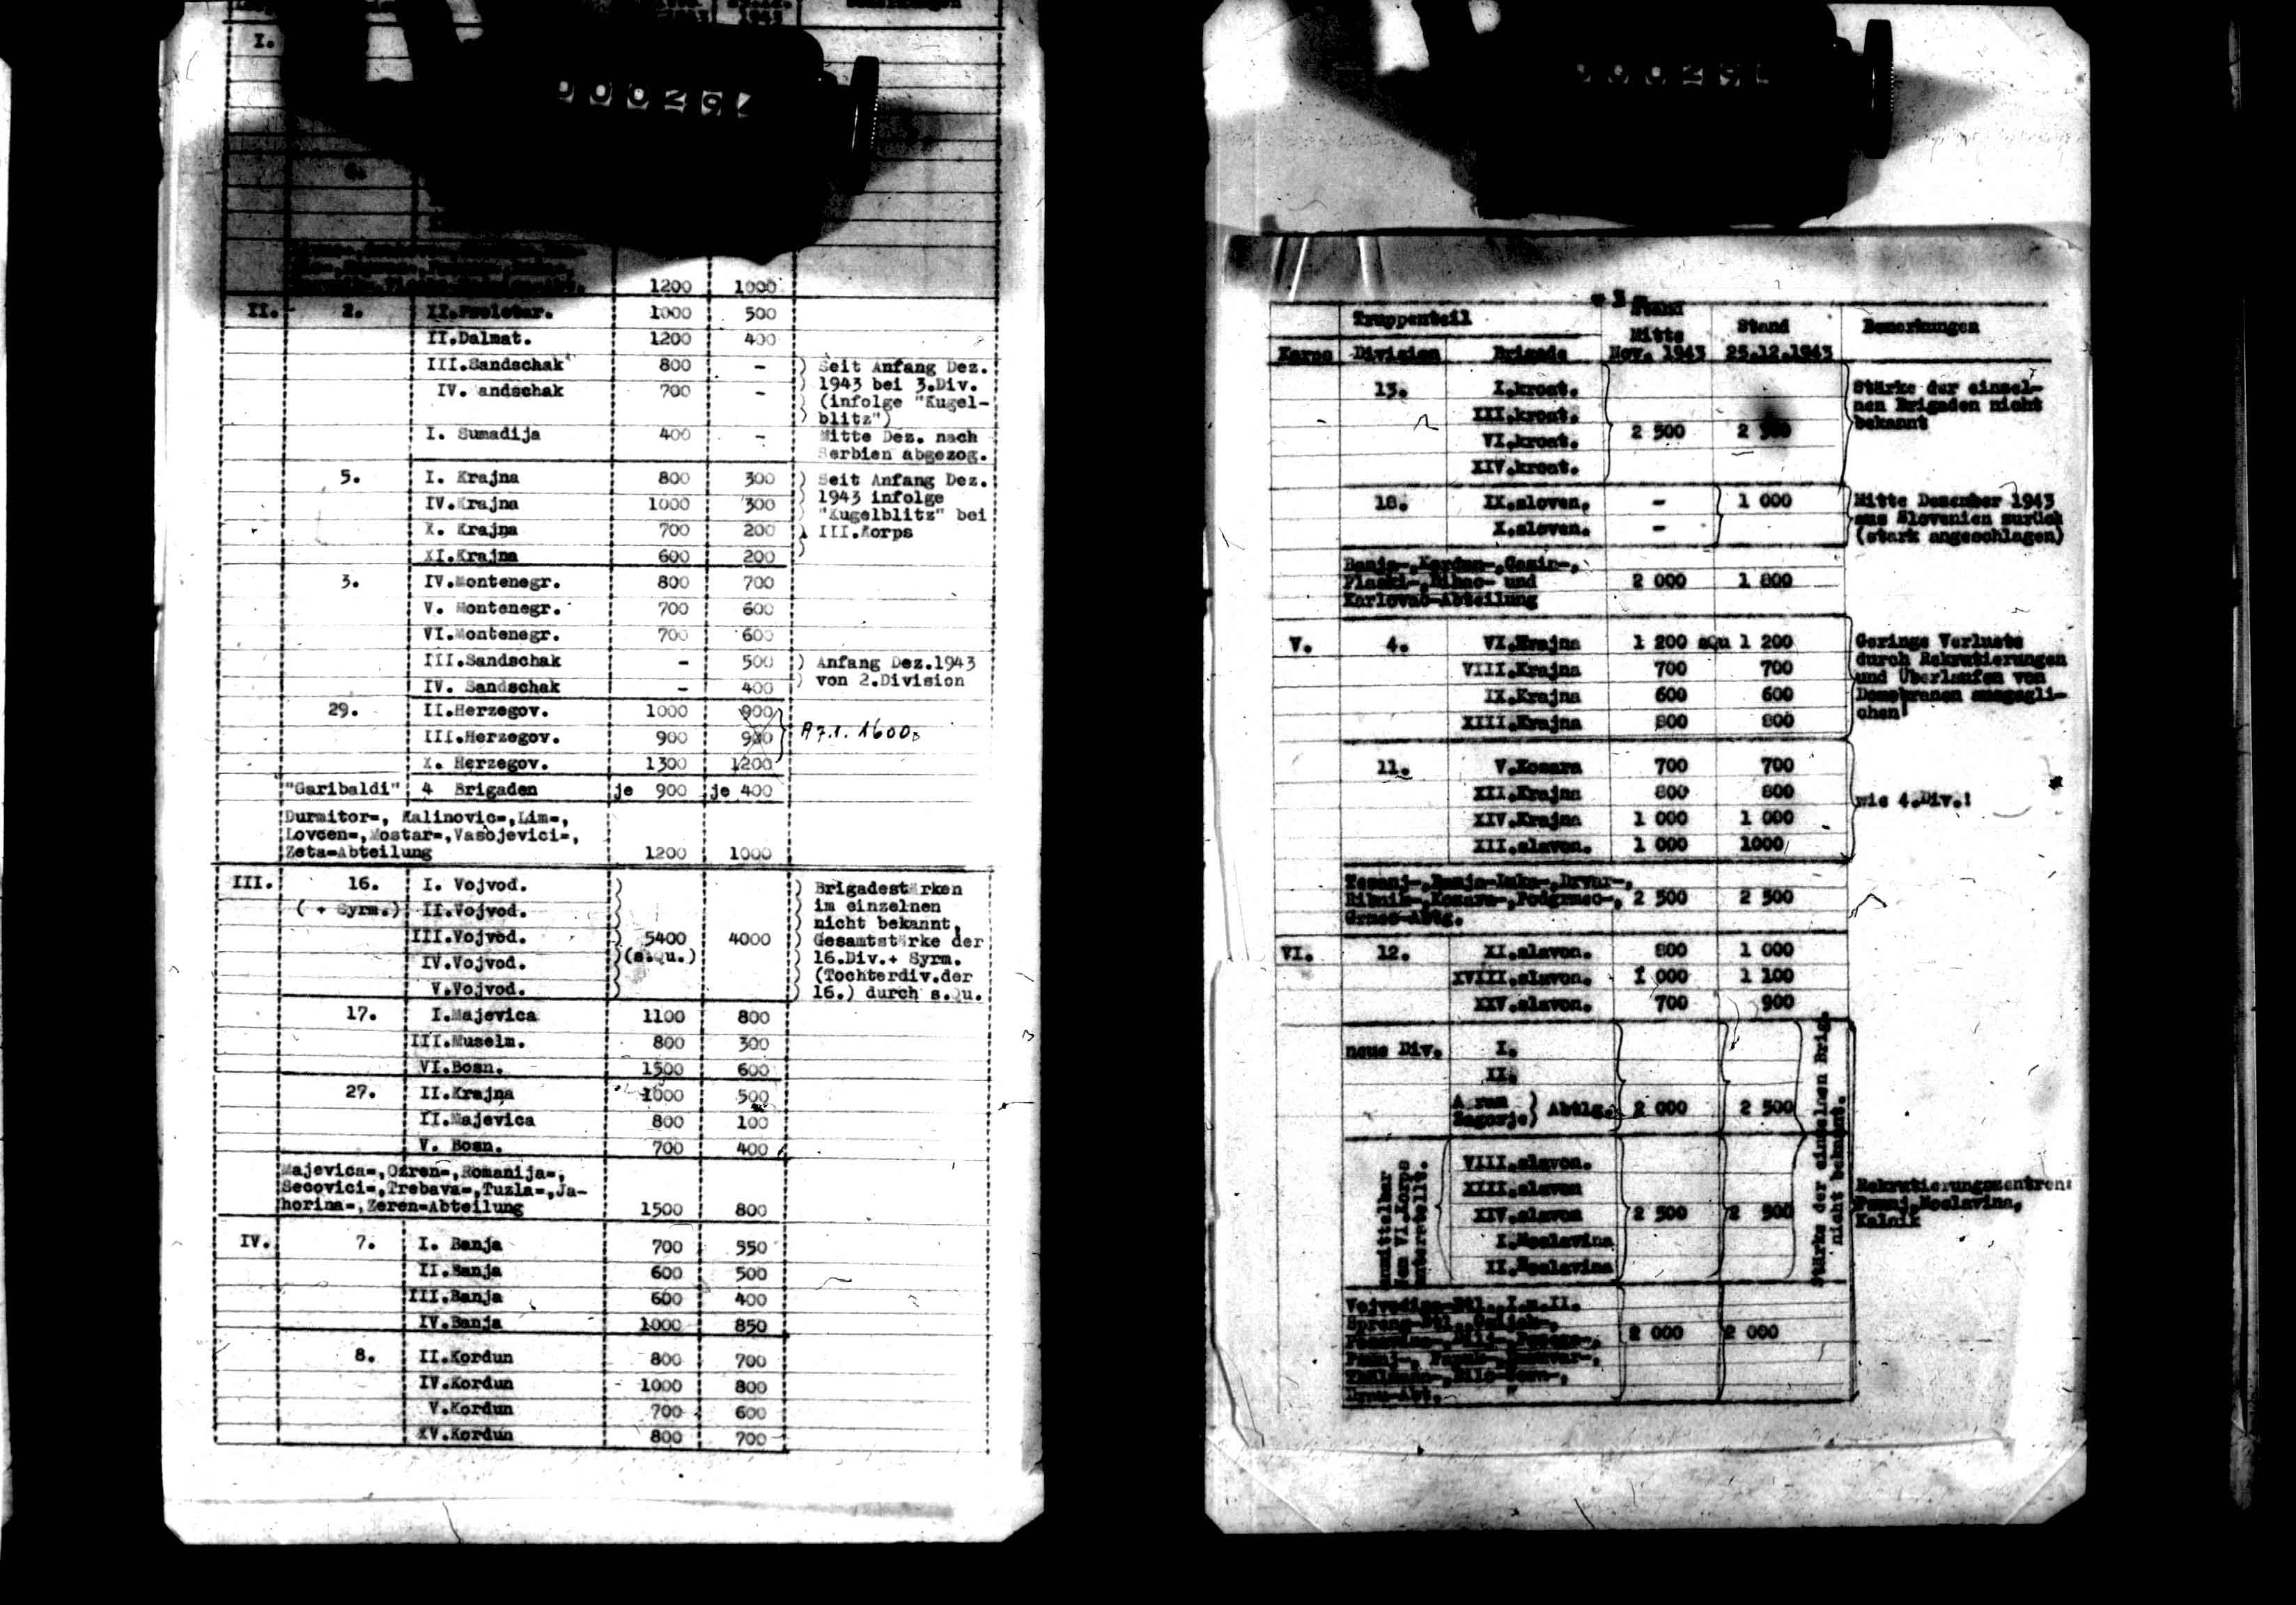 I.
1200 1000
II. 2. II.Proletar. 1000 500
II.Dalmat. 1200 400
III.Sandschak 800 - ) Seit Anfang Dez.
) 1943 bei 3.Div.
IV. andschak 700 - ) (infolge "Kugel-
) blitz")
I. Sumadija 400 - Mitte Dez. nach
Serbien abgezog.
5. I. Krajna 800 300 ) Seit Anfang Dez.
IV.Krajna 1000 300 ) 1943 infolge
) "Kugelblitz" bei
X. Krajna 700 200 ) III.Korps
XI.Krajna 600 200 )
3. IV.Montenegr. 800 700
V. Montenegr. 700 600
VI.Montenegr. 700 600
III.Sandschak - 500 ) Anfang Dez.1943
IV. Sandschak - 400 ) von 2.Division
29. II.Herzegov. 1000 900
III.Herzegov. 900 900
X. Herzegov. 1300 1200
"Garibaldi" 4 Brigaden je 900 je 400
Durmitor-, Kalinovic-, Lim-,
Lovcen-, Mostar-, Vasojevici-,
Zeta-Abteilung 1200 1000
III. 16. I. Vojvod. ) ) Brigadestärken
( + Syrm.) II.Vojvod. ) ) im einzelnen
) nicht bekannt,
III.Vojvod. ) 5400 4000 ) Gesamtstärke der
IV.Vojvod. )(s.Qu.) ) 16.Div.+ Syrm.
) (Tochterdiv.der
V.Vojvod. ) ) 16.) durch s.Qu.
17. I.Majevica 1100 800
III.Muselm. 800 300
VI.Bosn. 1500 600
27. II.Krajna 1000 500
II.Majevica 800 100
V. Bosn. 700 400
Majevica-, Ozren-, Romanija-,
Secovici-, Trebava-, Tuzla-, Ja-
horina-, Zeren-Abteilung 1500 800
IV. 7. I. Banja 700 550
II.Banja 600 500
III.Banja 600 400
IV.Banja 1000 850
8. II.Kordun 800 700
IV.Kordun 1000 800
V.Kordun 700 600
XV.Kordun 800 700
- 3
Truppenteil Stand Stand Bemerkungen
Mitte
Korps Division Brigade Nov. 1943 25.12.1943
13. I.kroat. Stärke der einzel-
III.kroat. nen Brigaden nicht
VI.kroat. 2 500 2 bekannt
XIV.kroat.
18. IX.sloven. - 1 000 Mitte Dezember 1943
aus Slovenien zurück
X.sloven. - (stark angeschlagen)
Banja-, Kordun-, Gacir-,
Plaski-, Bihac- und 2 000 1 800
Karlovac-Abteilung
V. 4. VI.Krajna 1 200 squ 1 200 Geringe Verluste
VIII.Krajna 700 700 durch Rekrutierungen
und Überlaufen von
IX.Krajna 600 600 Domobranen ausgegli-
XIII.Krajna 800 800 chen!
11. V.Kozara 700 700
XII.Krajna 800 800 wie 4.Div.!
XIV.Krajna 1 000 1 000
XII.slavon. 1 000 1000
Tesanj-, Banja-Luka-, Drvar-,
Ribnik-, Kozara-, Podgrmec-, 2 500 2 500
Grmec-Abtg.
VI. 12. XI.slavon. 800 1 000
XVIII.slavon. 1 000 1 100
XXV.slavon. 700 900
neue Div. I.
II.
Zagorje Abtlg. 2 000 2 500
Stärke der einzelnen Brig.
nicht bekannt.
unmittelbar
dem VI.Korps
unterstellt.
VIII.slavon.
XIII.slavon
XIV.slavon 2 500 2 500 Rekrutierungszentren:
Moslavina,
I.Moslavina Kalnik
II.Moslavina
I.u.II.
2 000 2 000